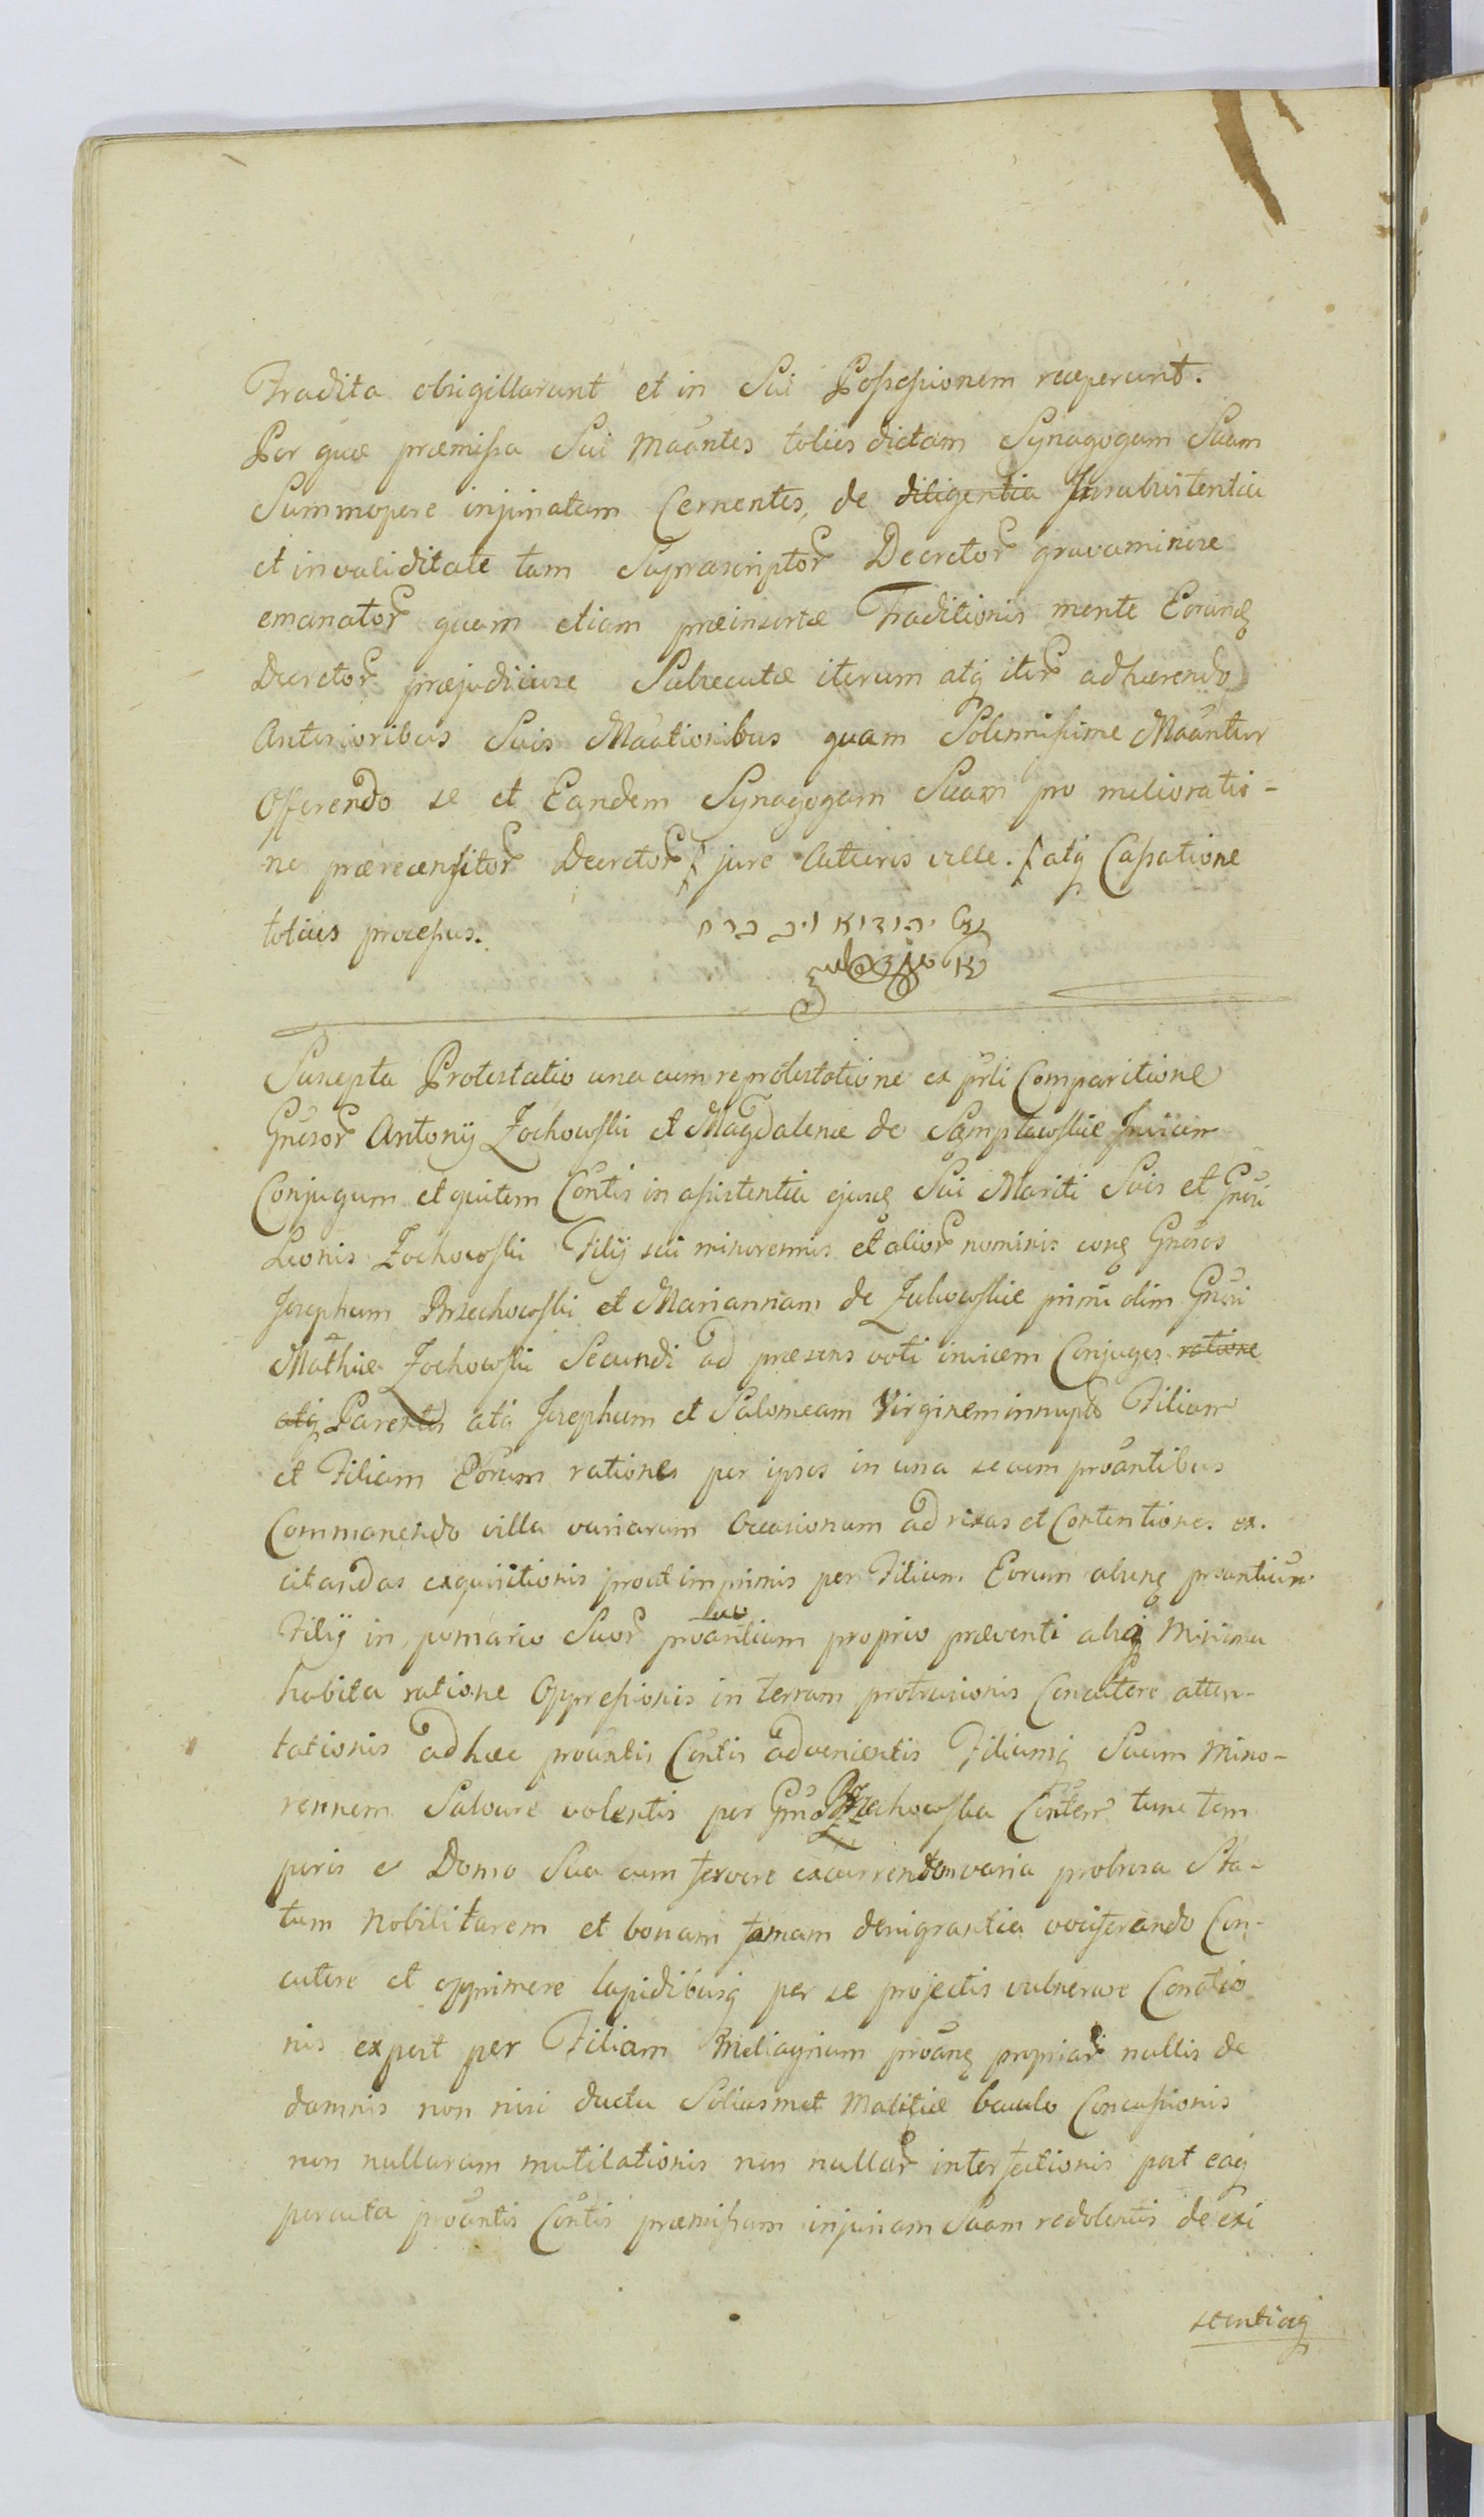 Tradita obsigillarunt et in Sui Possessionem receperunt.
Per quæ præmissa Sui Maãntes toties dictam Synagogam Suam
Summopere injuriatam Cernentes, de diligentia Insubsistentia
et invaliditate tam Suprascriptor Decretor gravaminose
emanator quam etiam præinsertæ Traditionis mente Eorunq
Decretor præjudiciose Subsecutæ iterum atq iter adhærendo
Anterioribus Suis Maãtionibus quam Solennissime Maãntur
Offerendo se et Eandem Synagogam Suam pro melioratio-
ne prærecensitor Decretor jure Actoris velle. atq Cassatione
totius processus.
Suscepta Protestatio una cum reprotestatione ex prli Comparitione
Gnesor Antonij Żochowski et Magdalenæ de Sąmptowskie Invicem
Conjugum et quidem Contis in assistentia ejusq Sui Mariti Suis et Gnesi
Leonis Żochowski Filij sui minorennis et alior nominis conq Gnesos
Josephum Brzechowski et Mariannam de Żukowskie primi olim Gnesi
Mathiæ Żochowski Secundi ad præsens voti invicem Conjuges ratione
atq Parentes atq Josephum et Salomeam Virginem innupt Filium
et Filiam Eorum ratione per ipsos in una secum proãntibus
Commanendo villa variarum Occasionum ad rixas et Contentiones ex.
citandas exquisitionis prout imprimis per Filium Eorum absnq proantium
Filij in pomario Suor proãntium proprio præventi absq Minima
habita ratione Oppressionis in terram protrusionis Concutere atten-
tationis ad hæc proãntis Contis advenientis Filiumq Suum Mino-
rennem Salvare volentis per Gnã Brzechowska Conter tunc tem
poris e Domo Sua cum fervore excurrendo varia probrosa Sta-
tum Nobilitarem et bonam famam denigrantia vociferando Con-
cutere et opprimere lapidibusq per se projectis vulnerare Conatio
nis ex post per Filiam Meliagrium proãnq propriar nullis de
damnis non nisi ducta Soliusmet Malitiæ baculo Concussionis
non nullarum mutilationis non nullar interfectionis post eaq
peracta proãntis Contis præmissam injuriam Suam redolentis de exi
stentiaq